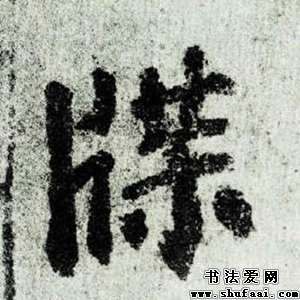 牒
书法爱网
www.shufaai.com